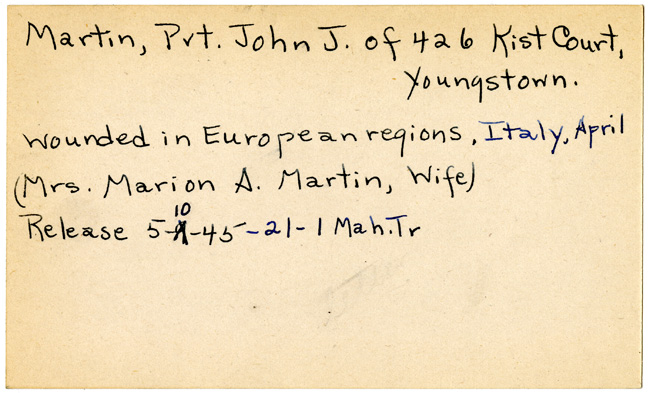 Martin, Pvt. John J. of 426 Kist Court,
Youngstown.
wounded in European regions, Italy, April
(Mrs. Marion A. Martin, Wife)
10
Release 5--45-21-1 Mah.Tr